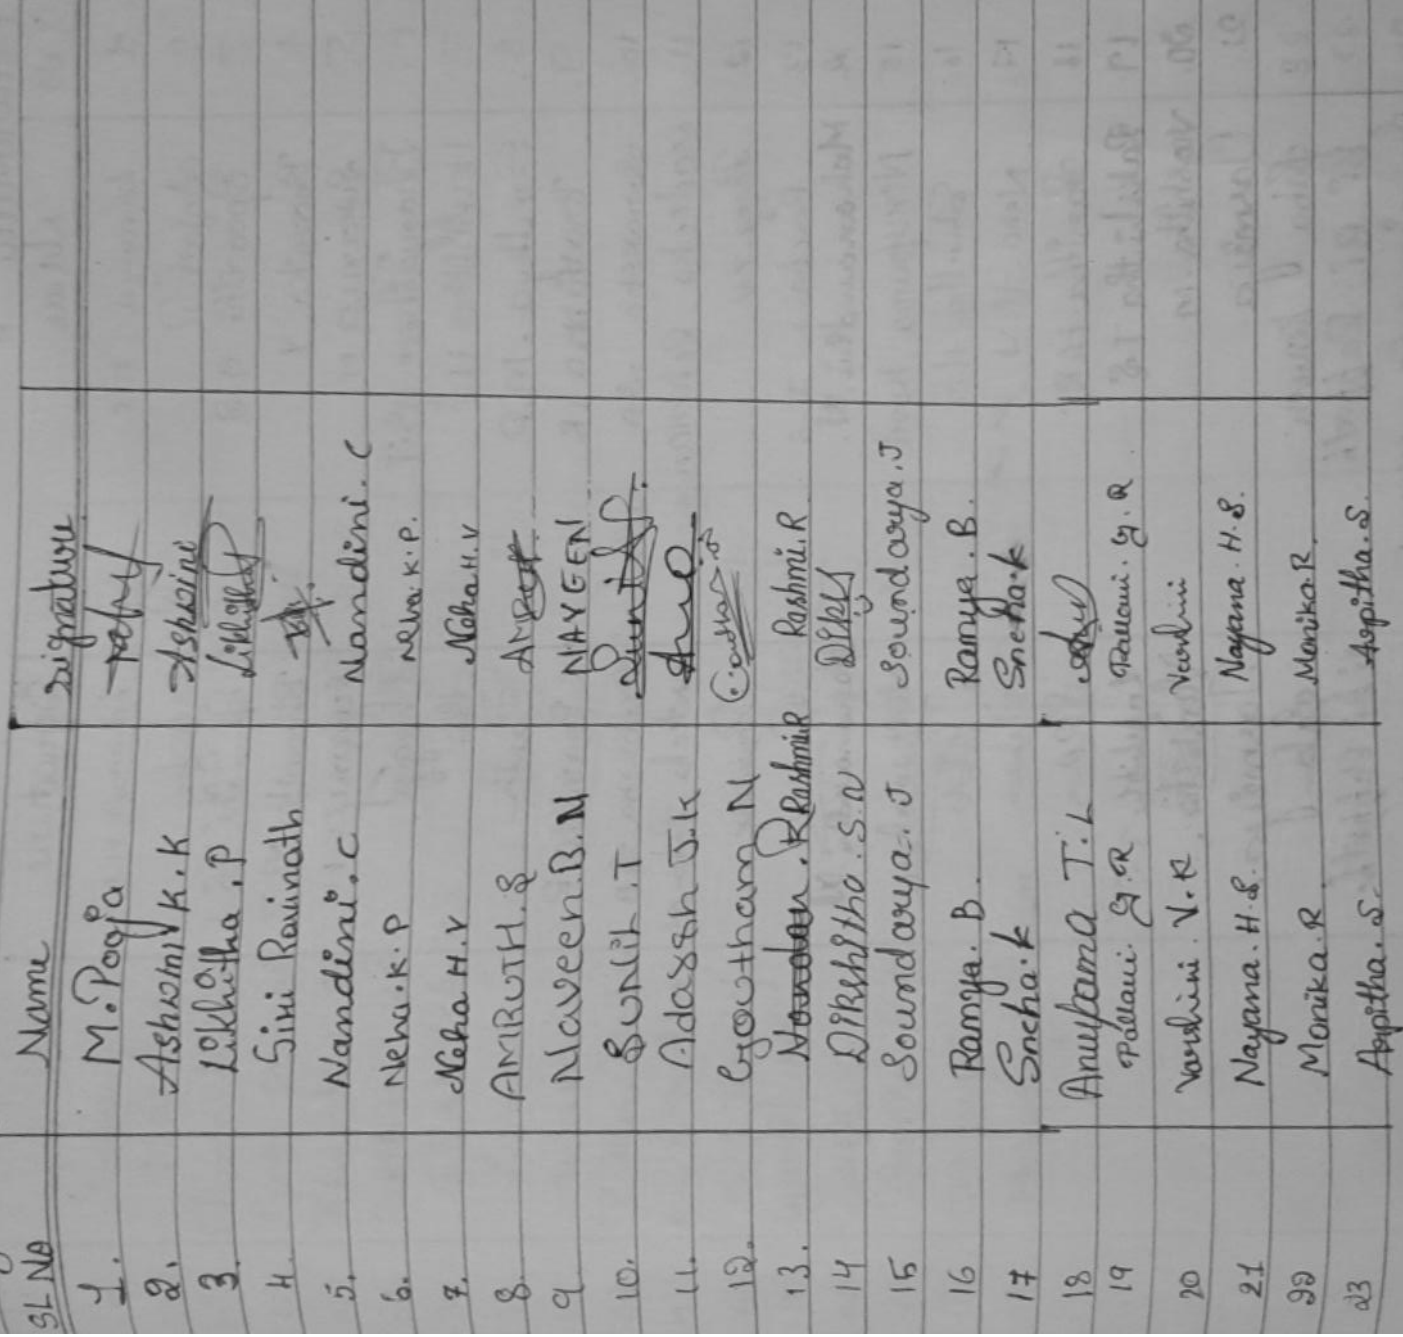 SL No Name Signature
1. M. Pooja
2. Ashwini K.K Ashwini
3 Likhitha.P Likhitha
4 Siri Ravinath
5. Nandini.C Nandini.C
6. Neha.K.P Neha.K.P.
7. Neha H.V Neha H.V
8. AMRUTH.S
9 Naveen.B.N NAVEEN
10. SUNIL.T
11. Adarsh J.K
12. Goutham N Goutham
13. Rashmi.R Rashmi.R
14 Dikshitha.S.N Diks
15 Soundarya.J Soundarya.J
16 Ramya.B. Ramya.B.
17 Sneha.k Sneha.k
18 Anupama T.L Anu
19 Pallavi G.R Pallavi.G.R
20 Varshini.V.R Varshini
21 Nayana.H.S. Nayana.H.S.
22 Monika.R Monika.R
23 Arpitha.S. Arpitha.S.